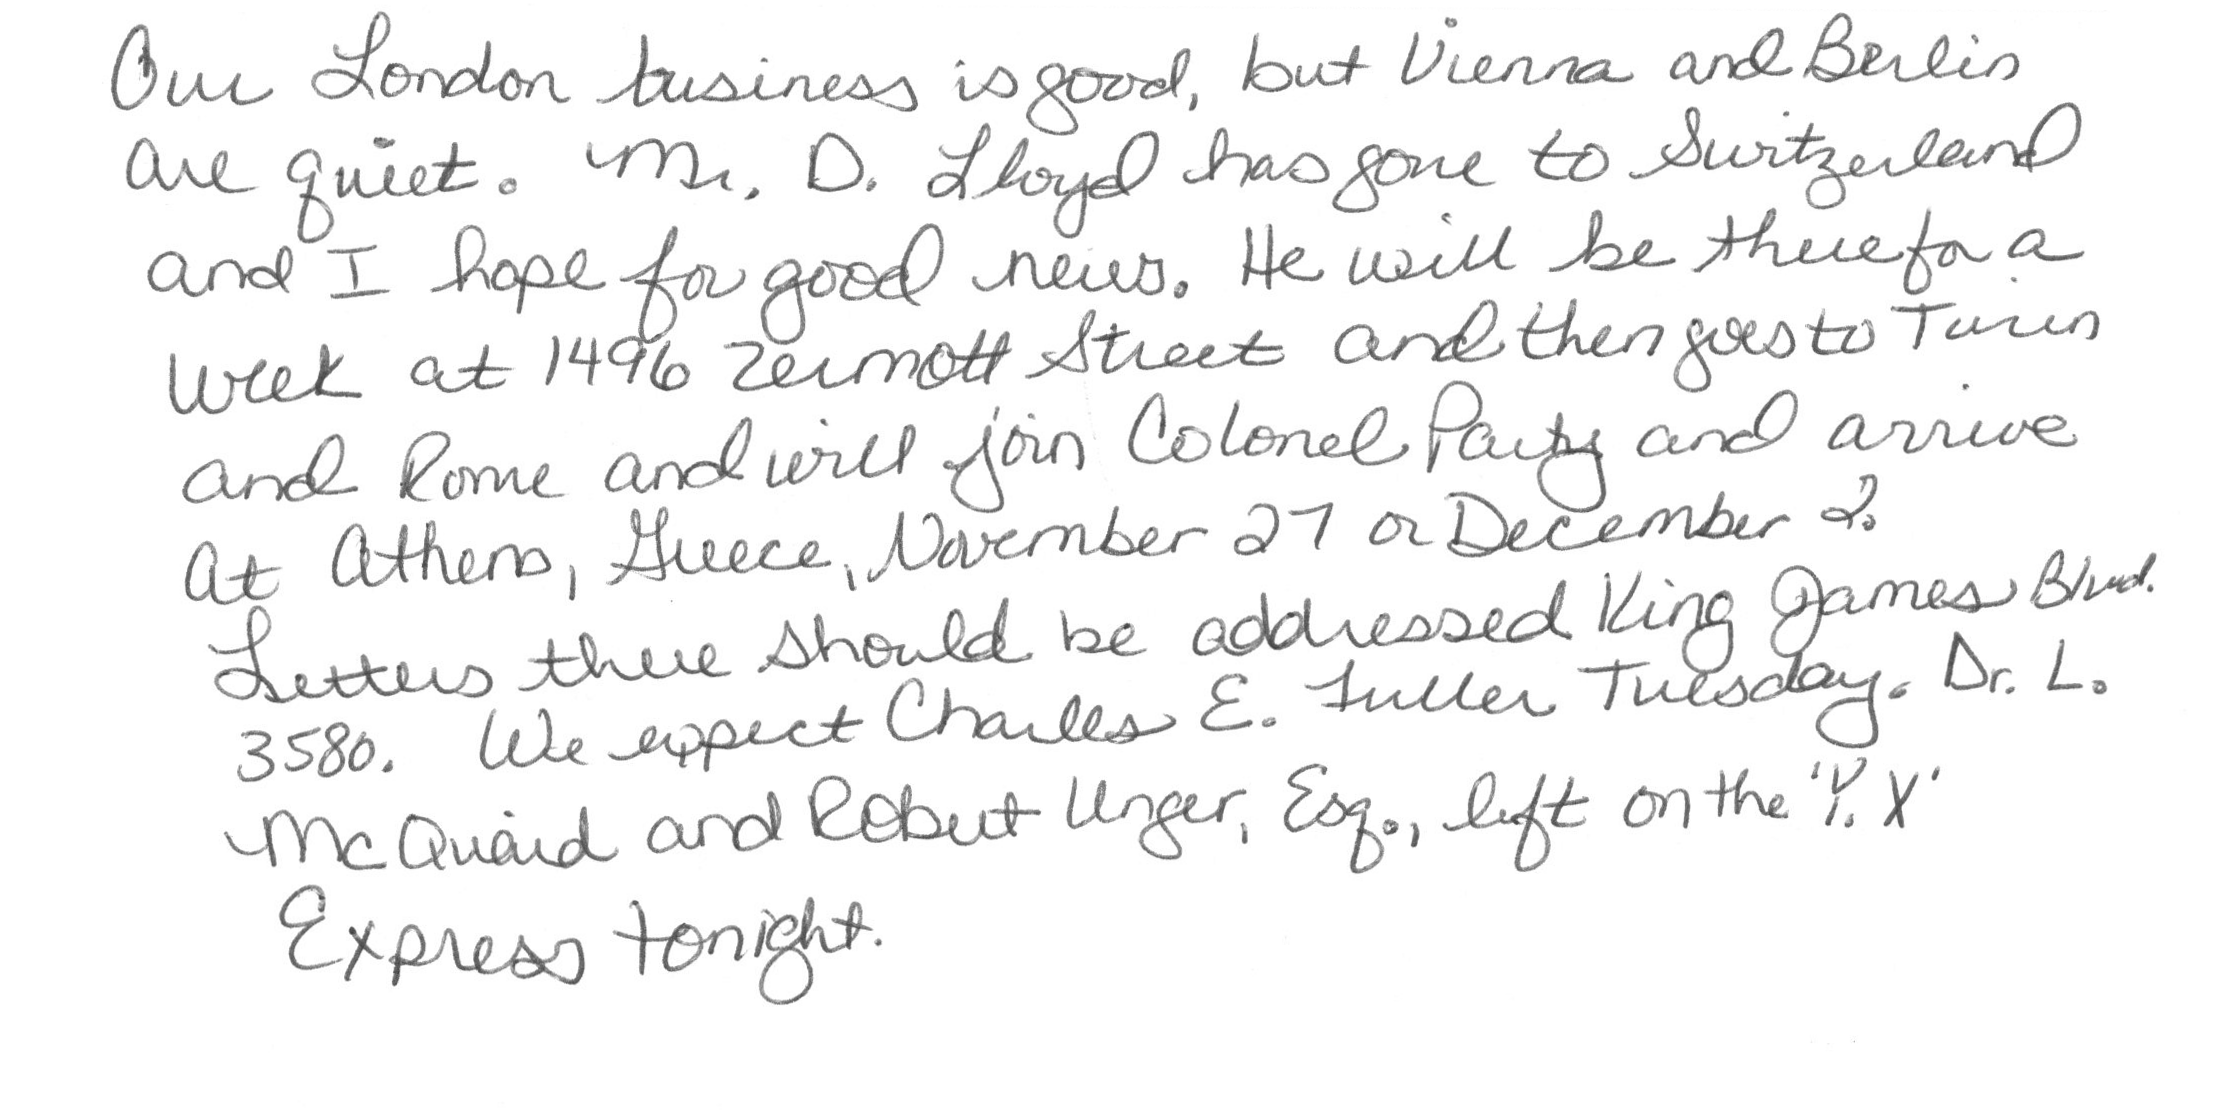 Our London business is good, but Vienna and Berlin
are quiet. Mr. D. Lloyd has gone to Switzerland
and I hope for good news. He will be there for a
week at 1496 Zermott Street and then goes to Turin
and Rome and will join Colonel Party and arrive
at Athens, Greece, November 27 or December 2.
Letters there should be addressed King James Blvd.
3580. We expect Charles E. Fuller Tuesday. Dr. L.
McQuaid and Robert Unger, Esq., left on the 'Y. X'
Express tonight.